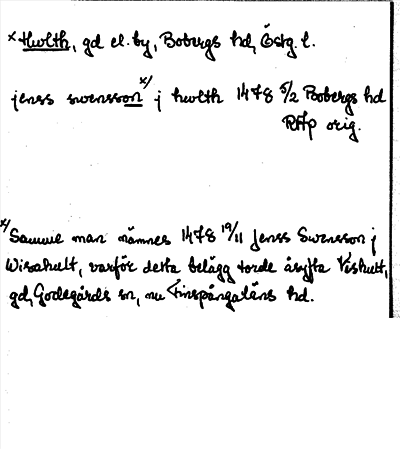 × Hwlth, gd el. by, Bobergs hd, Östg. l.
jenss swensson ×/ j hwlth 1478 5/2 Bobergs hd
RAp orig.
×/ Samme man nämnes 1478 19/11 Jenss Swensson j
Wisahult, varför detta belägg torde åsyfta Vishult,
gd, Godegårds sn, nu Finspångaläns hd.